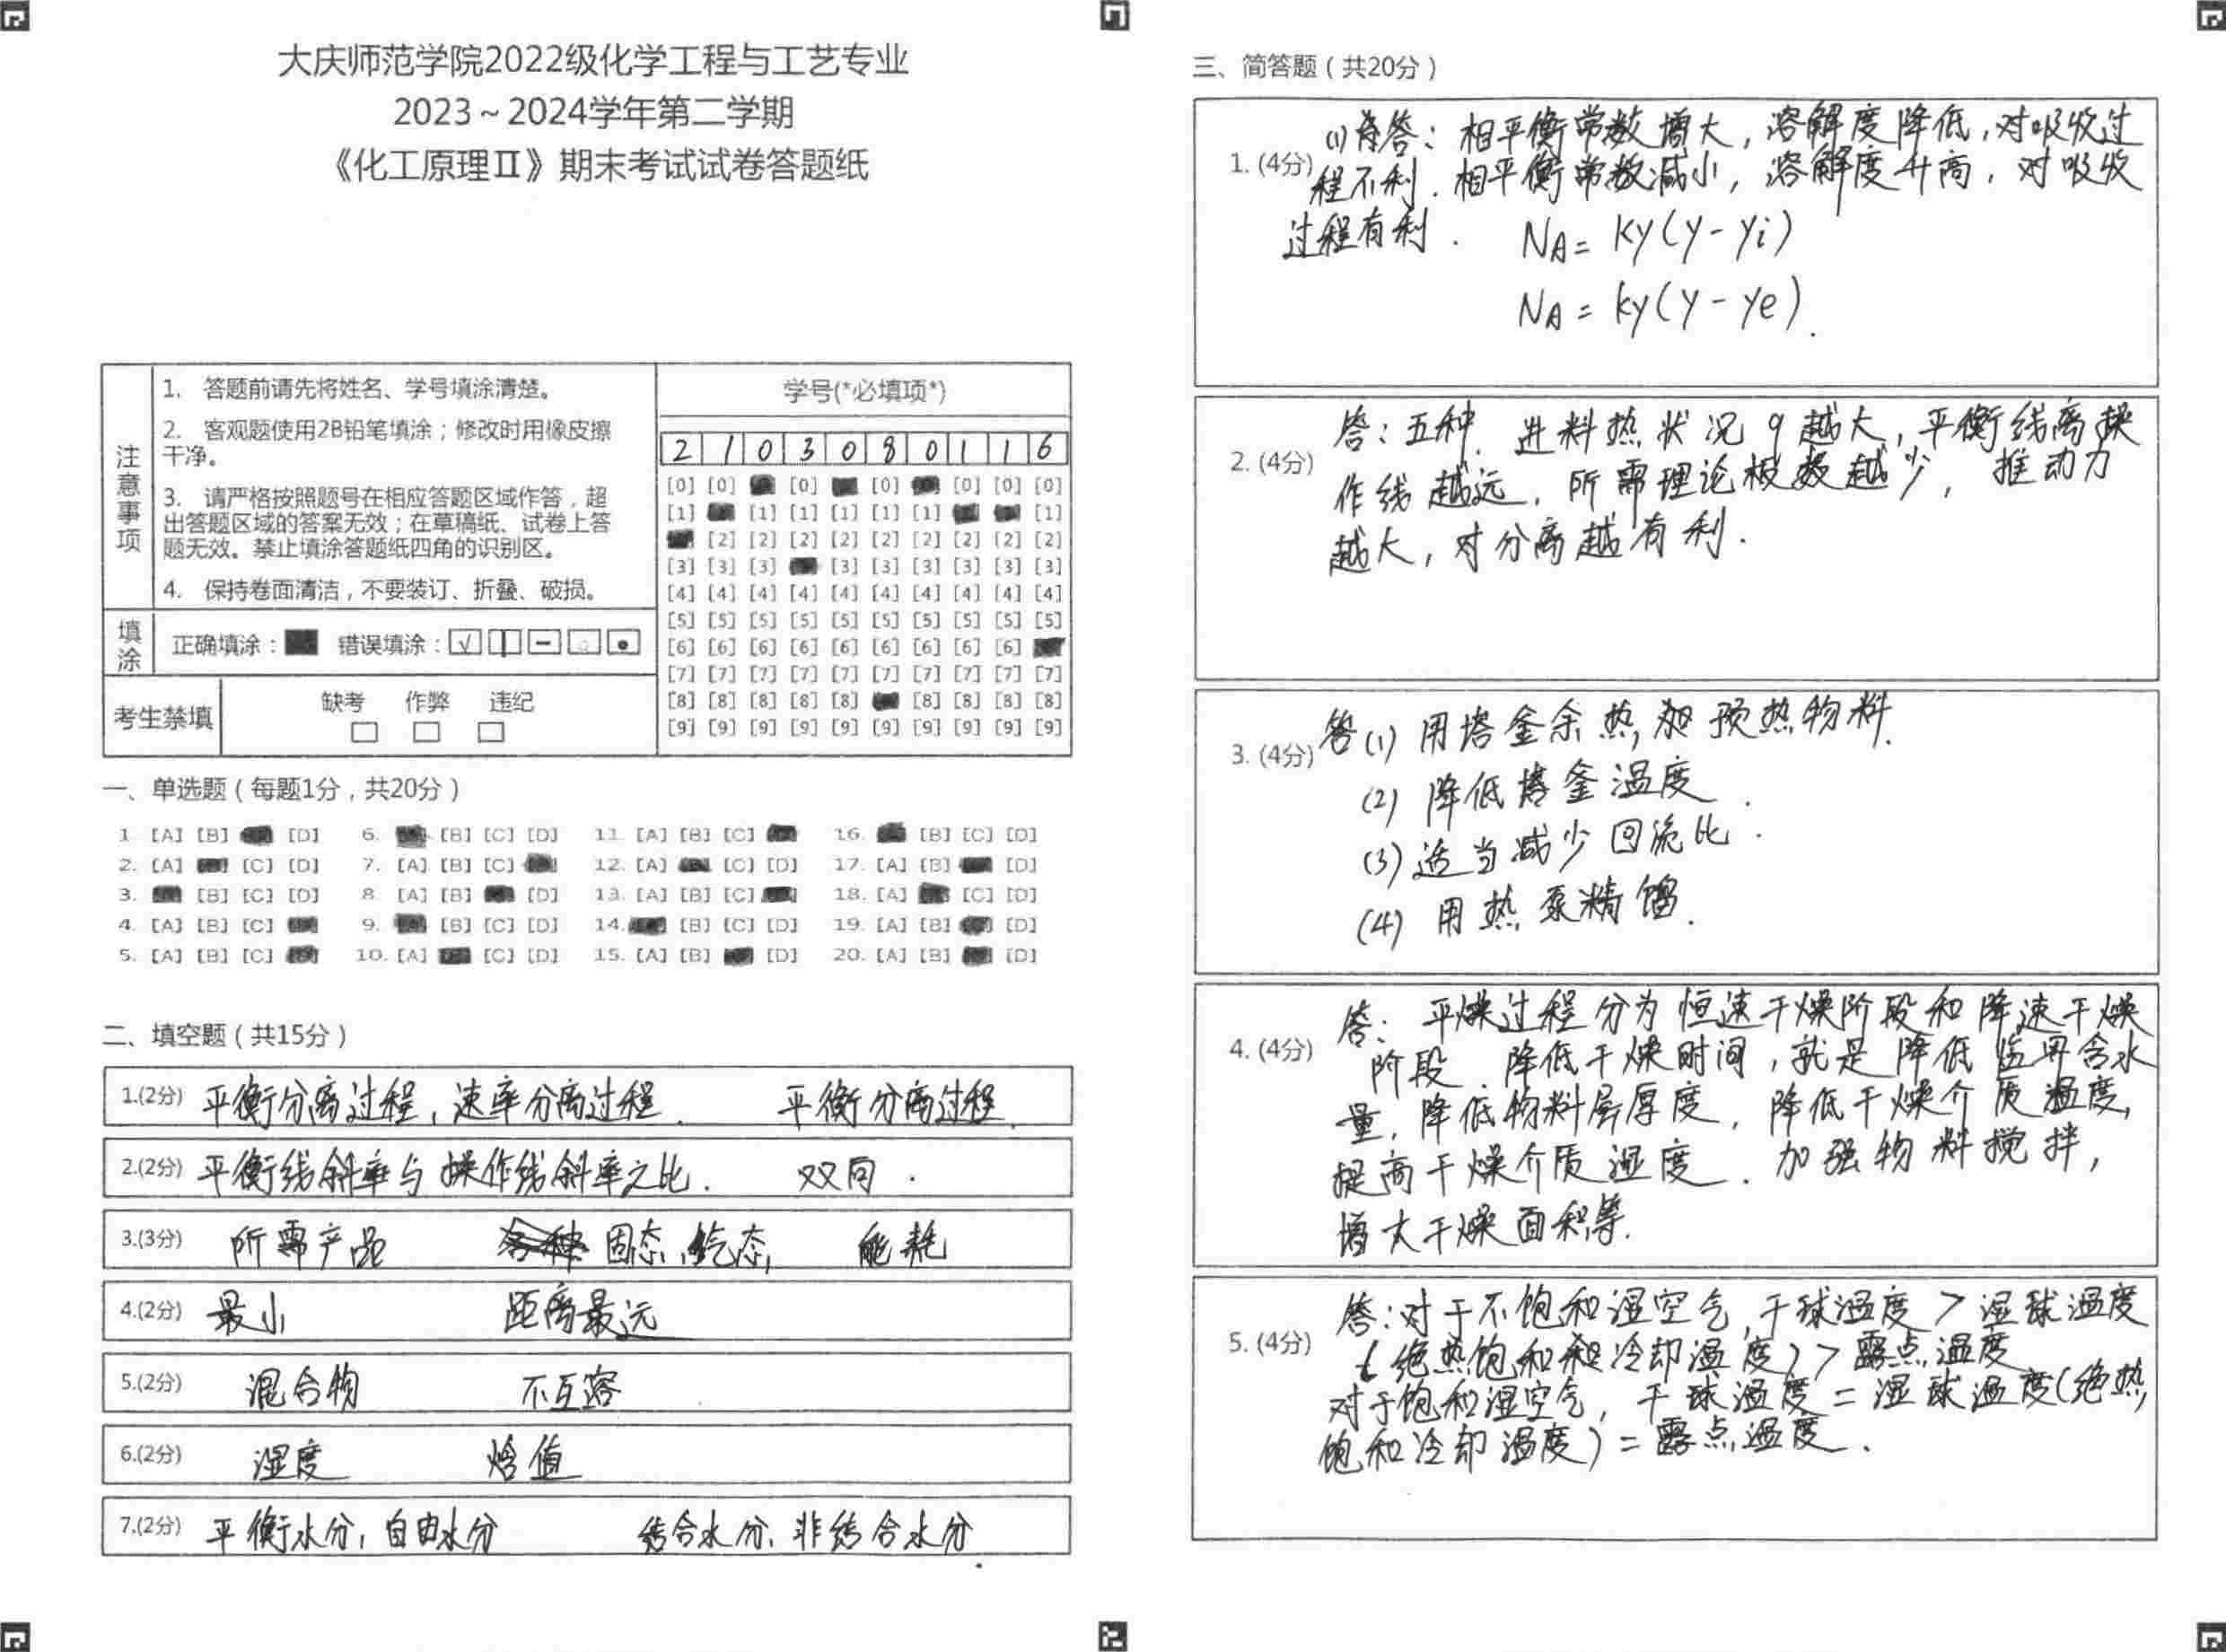 大庆师范学院2022级化学工程与工艺专业
2023～2024学年第二学期
《化工原理Ⅱ》期末考试试卷答题纸
注意事项
1. 答题前请先将姓名、学号填涂清楚。
2. 客观题使用2B铅笔填涂；修改时用橡皮擦
干净。
3. 请严格按照题号在相应答题区域作答，超
出答题区域的答案无效；在草稿纸、试卷上答
题无效。禁止填涂答题纸四角的识别区。
4. 保持卷面清洁，不要装订、折叠、破损。
填涂 正确填涂： 错误填涂：
考生禁填 缺考 作弊 违纪
学号(*必填项*)
2 1 0 3 0 8 0 1 1 6
[0] [0] [0] [0] [0] [0] [0]
[1] [1] [1] [1] [1] [1] [1]
[2] [2] [2] [2] [2] [2] [2] [2] [2]
[3] [3] [3] [3] [3] [3] [3] [3] [3]
[4] [4] [4] [4] [4] [4] [4] [4] [4] [4]
[5] [5] [5] [5] [5] [5] [5] [5] [5] [5]
[6] [6] [6] [6] [6] [6] [6] [6] [6]
[7] [7] [7] [7] [7] [7] [7] [7] [7] [7]
[8] [8] [8] [8] [8] [8] [8] [8] [8]
[9] [9] [9] [9] [9] [9] [9] [9] [9] [9]
一、单选题（每题1分，共20分）
1. [A] [B] [D] 6. [B] [C] [D] 11. [A] [B] [C] 16. [B] [C] [D]
2. [A] [C] [D] 7. [A] [B] [C] 12. [A] [C] [D] 17. [A] [B] [D]
3. [B] [C] [D] 8. [A] [B] [D] 13. [A] [B] [C] 18. [A] [C] [D]
4. [A] [B] [C] 9. [B] [C] [D] 14. [B] [C] [D] 19. [A] [B] [D]
5. [A] [B] [C] 10. [A] [C] [D] 15. [A] [B] [D] 20. [A] [B] [D]
二、填空题（共15分）
1.(2分) 平衡分离过程，速率分离过程. 平衡分离过程.
2.(2分) 平衡线斜率与操作线斜率之比. 双向.
3.(3分) 所需产品 固态、气态, 能耗
4.(2分) 最小 距离最远
5.(2分) 混合物 不互溶
6.(2分) 湿度 焓值
7.(2分) 平衡水分，自由水分 结合水分，非结合水分.
三、简答题（共20分）
1. (4分) (1) 答：相平衡常数增大，溶解度降低，对吸收过
程不利. 相平衡常数减小，溶解度升高，对吸收
过程有利. NA = ky(y-yi)
NA = ky(y-ye).
2. (4分) 答：五种. 进料热状况q越大，平衡线离操
作线越远，所需理论板数越少，推动力
越大，对分离越有利.
3. (4分) 答(1) 用塔釜余热，加预热物料.
(2) 降低塔釜温度.
(3) 适当减少回流比.
(4) 用热泵精馏.
4. (4分) 答：干燥过程分为恒速干燥阶段和降速干燥
阶段. 降低干燥时间，就是降低临界含水
量，降低物料层厚度，降低干燥介质温度，
提高干燥介质湿度. 加强物料搅拌，
增大干燥面积等.
5. (4分) 答：对于不饱和湿空气，干球温度 > 湿球温度
(绝热饱和和冷却温度) > 露点温度
对于饱和湿空气，干球温度 = 湿球温度(绝热
饱和冷却温度) = 露点温度.